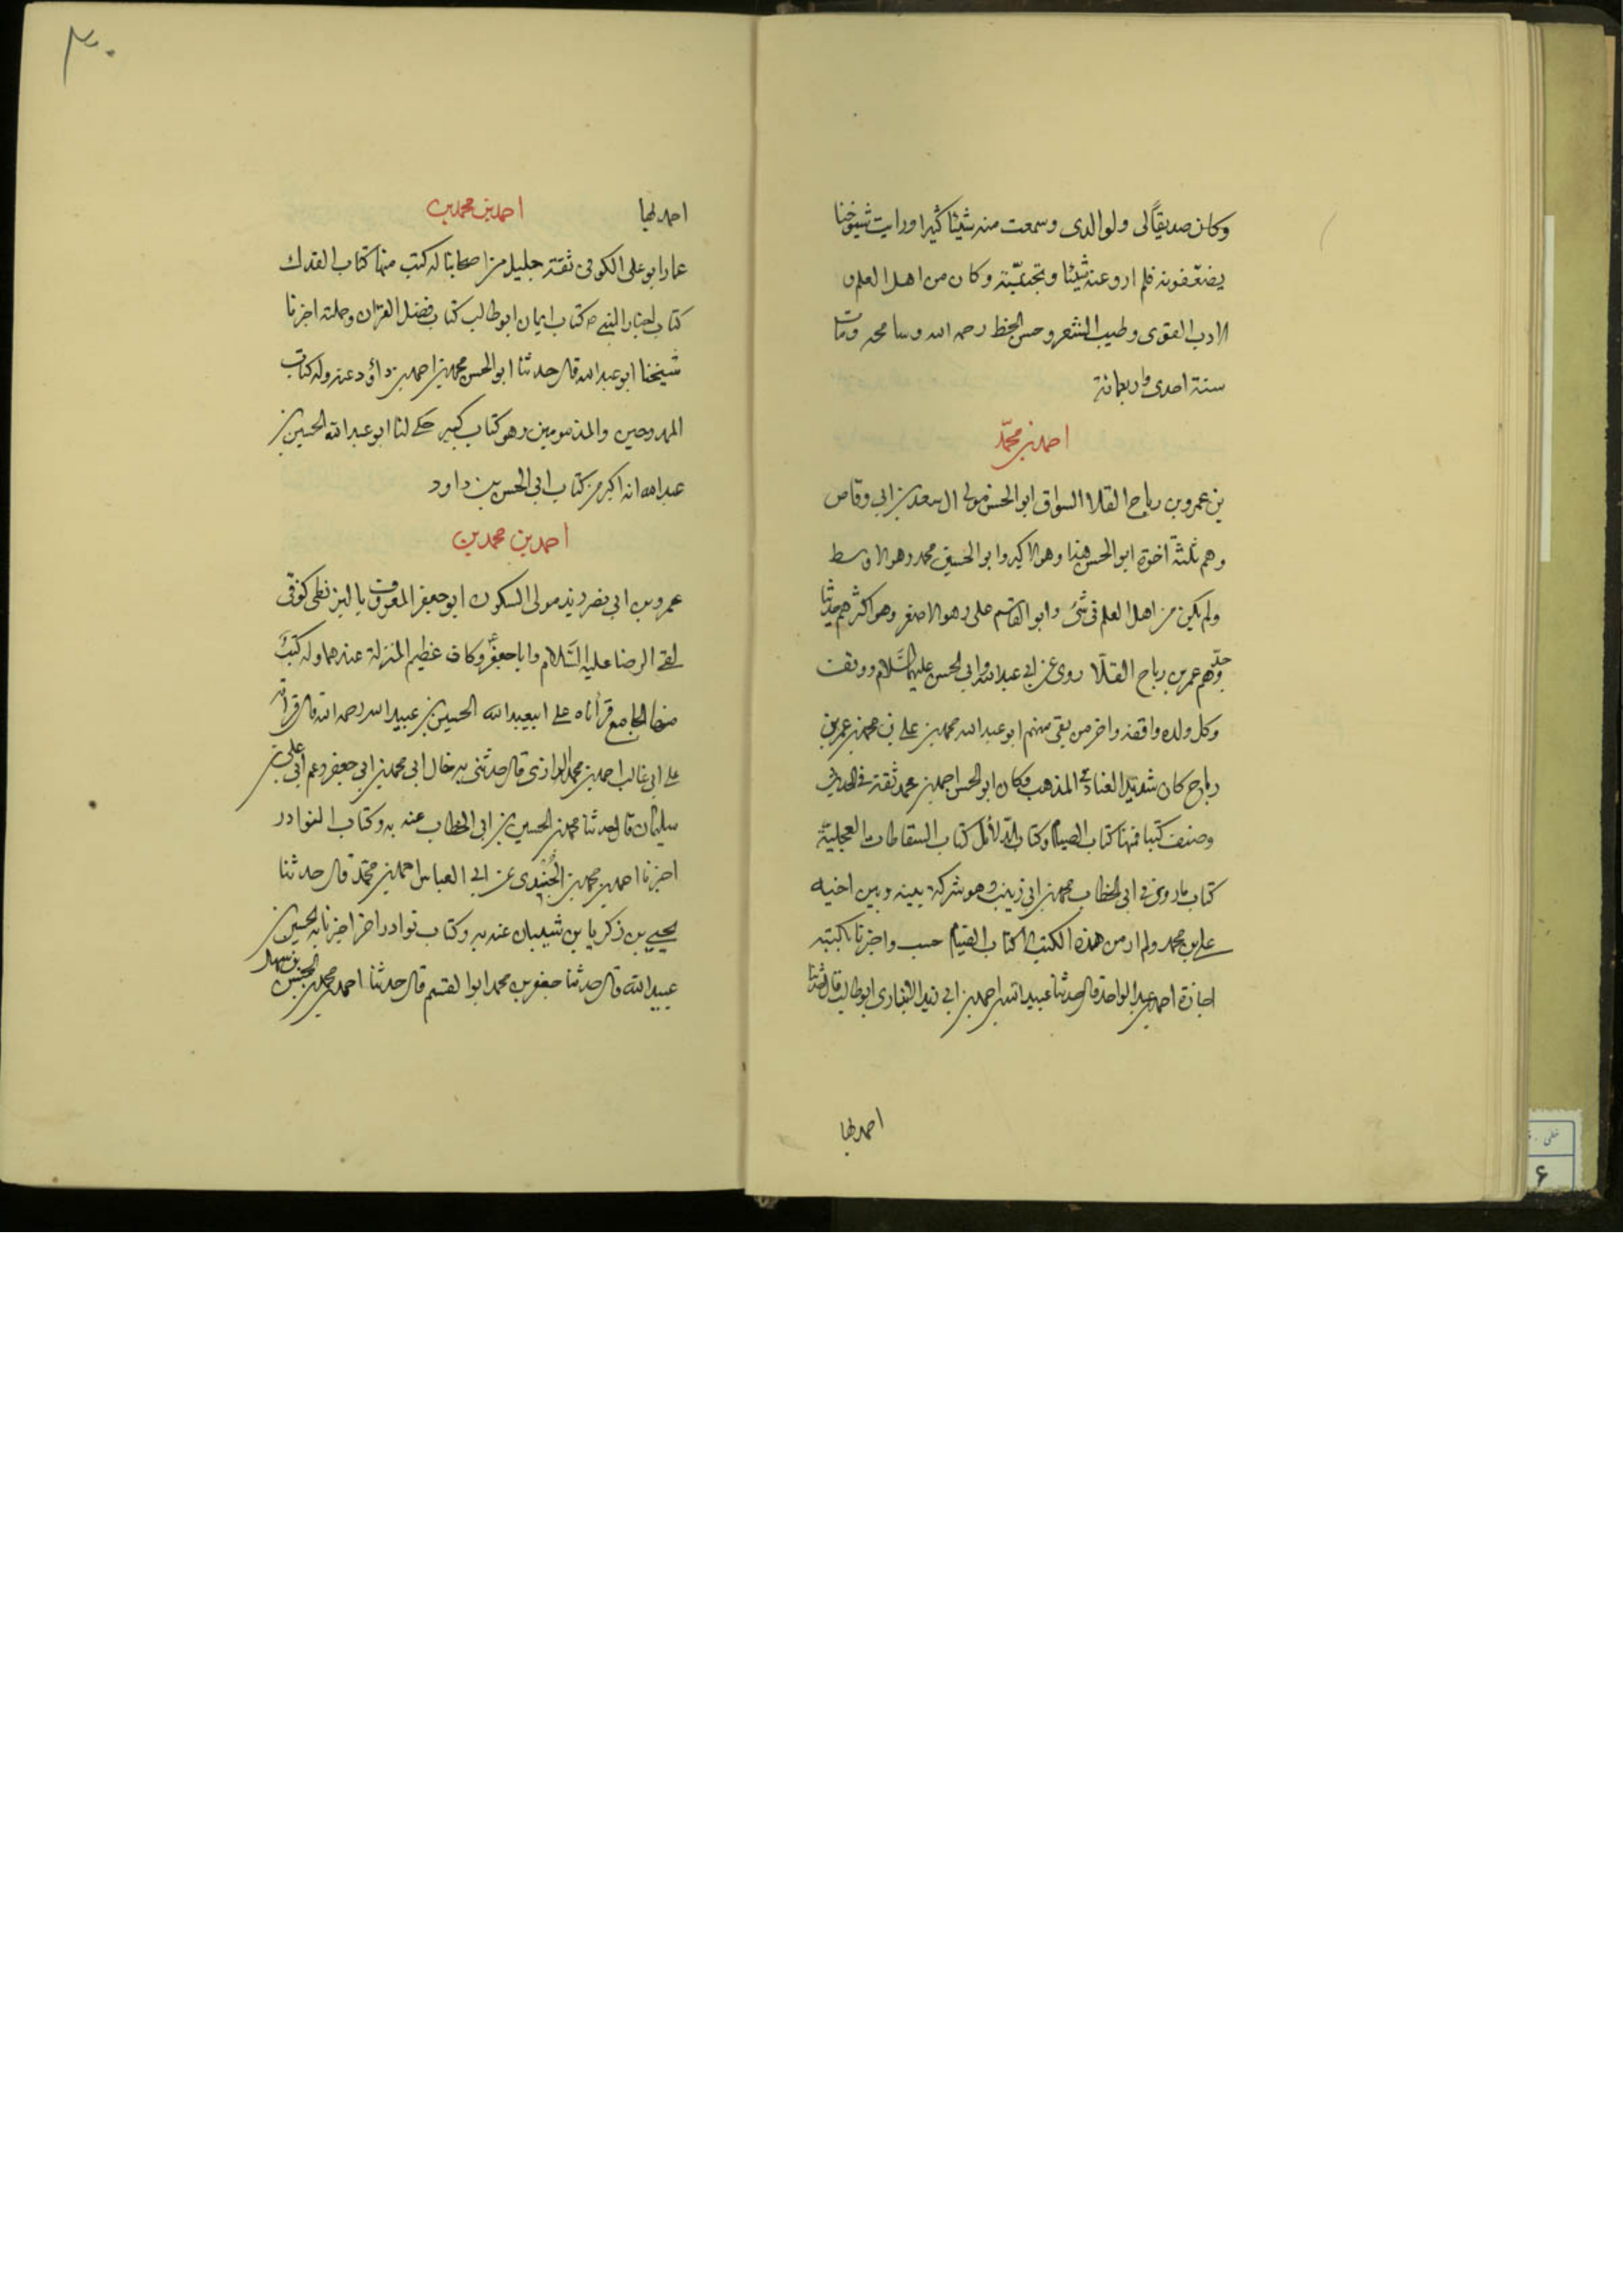 وكان صديقاً لى ولوالدى وسمعت منه شيئا كثيرا ورايت شيوخنا
يضعّفونه فلم ارو عنه شيئا وتجنبته وكان من اهل العلم و
الادب القوى وطيب الشعر وحسن الخط رحمه الله وسامحه ومات
سنة احدى واربعمائة
احمد بن محمّد
بن عمرو بن رباح القلا السواق ابو الحسن مولى ال سعد بن ابى وقاص
وهم ثلثة اخوة ابو الحسن هذا وهو الاكبر وابو الحسين محمد وهو الاوسط
ولم يكن من اهل العلم فى شئ وابو القاسم على وهو الاصغر وهو اكثرهم حديثا
وجدّهم عمر بن رباح القلّا روى عن ابى عبدالله وابى الحسن عليهما السّلام ووقف
وكل ولده واقفة واخر من بقى منهم ابو عبد الله محمد بن على بن محمد بن عمر بن
رباح كان شديد العناد فى المذهب وكان ابو الحسن احمد بن محمد ثقة فى الحديث
وصنف كتبا فمنها كتاب الصيام وكتاب الدّلائل كتاب السقاطات العجلية
كتاب ما روى فى ابى الخطاب محمد بن ابى زينب وهو شركة بينه وبين اخيه
على بن محمد ولم ار من هذه الكتب الا كتاب الصيام حسب واخبرنا بكتبه
اجازة احمد بن عبد الواحد قال حدثنا عبيد الله بن احمد بن ابى زيد الانبارى ابو طالب قال حدثنا
احمد بها
٣٠
احمد بها احمد بن محمد بن
عمار ابو على الكوفى ثقة جليل من اصحابنا له كتب منها كتاب الفدك
كتاب اخبار النبى ص كتاب ايمان ابو طالب كتاب فضل القران وحملته اخبرنا
شيخنا ابو عبد الله قال حدثنا ابو الحسن محمد بن احمد بن داؤد عنه وله كتاب
الممدوحين والمذمومين وهو كتاب كبير حكى لنا ابو عبد الله الحسين بن
عبد الله انه اكبر من كتاب ابى الحسن بن داود
احمد بن محمد بن
عمرو بن ابى نصر زيد مولى السكون ابو جعفر المعروف بالبزنطى كوفى
لقى الرضا عليه السّلام وابا جعفر وكان عظيم المنزلة عندهما وله كتب
منها الجامع قرأناه على ابيعبد الله الحسين بن عبيد الله رحمه الله قال قرأته
على ابى غالب احمد بن محمد الرازى قال حدثنى به خال ابى محمد بن ابى جعفر وعم ابى على بن
سليمان قال حدثنا محمد بن الحسين بن ابى الخطاب عنه به وكتاب النوادر
اخبرنا احمد بن محمد بن الجنيدى عن ابى العباس احمد بن محمّد قال حدثنا
يحيى بن زكريا بن شيبان عنه به وكتاب نوادر اخر اخبرنا به الحسين بن
عبيدالله قال حدثنا جعفر بن محمد ابو القسم قال حدثنا احمد بن محمد بن الحسن بن سهل